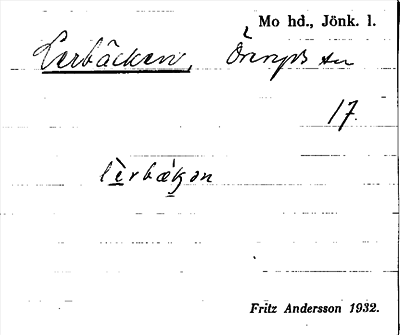 Mo hd., Jönk. l.
Lerbäcken, Öreryds sn
17.
lèrbæ̀kən
Fritz Andersson 1932.